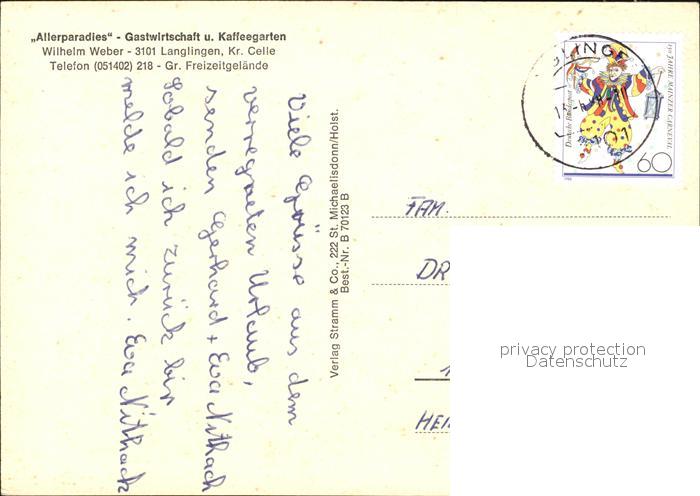 „Allerparadies" - Gastwirtschaft u. Kaffeegarten
Wilhelm Weber - 3101 Langlingen, Kr. Celle
Telefon (051402) 218 - Gr. Freizeitgelände
Viele Grüsse aus dem
verregneten Urlaub,
senden Gerhard + Eva Nithack
Sobald ich zurück bin
melde ich mich. Eva Nithack
Verlag Stramm & Co., 222 St. Michaelisdonn/Holst.
Best.-Nr. B 70123 B
150 JAHRE MAINZER CARNEVAL
Deutsche Bundespost
60
FAM.
DR
HEI
privacy protection
Datenschutz